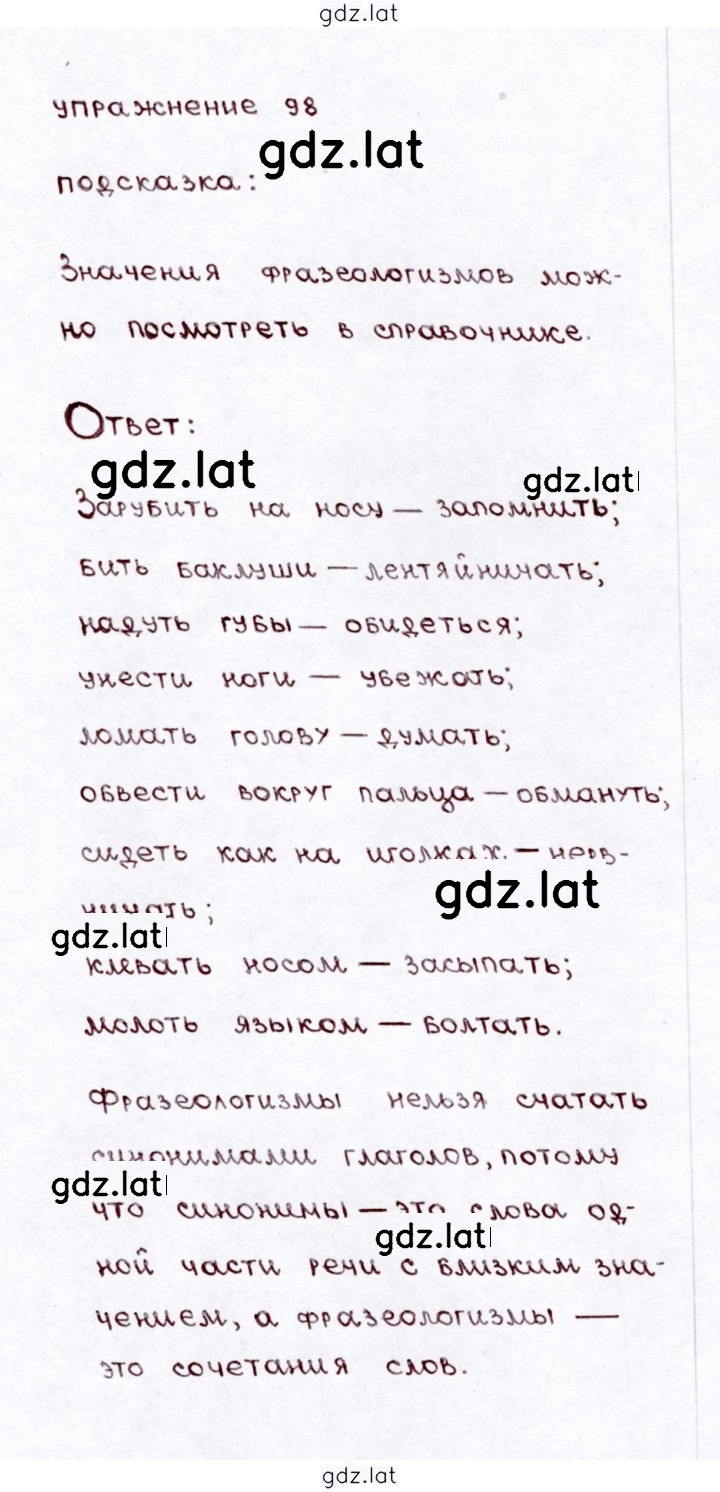 gdz.lat
упражнение 98
gdz.lat
подсказка:
Значения фразеологизмов мож-
но посмотреть в справочнике.
Ответ:
gdz.lat
gdz.lat
Зарубить на носу — запомнить;
бить баклуши — лентяйничать;
надуть губы — обидеться;
унести ноги — убежать;
ломать голову — думать;
обвести вокруг пальца — обмануть;
сидеть как на иголках —
gdz.lat
gdz.lat
клевать носом — засыпать;
молоть языком — болтать.
Фразеологизмы нельзя считать
синонимами глаголов, потому
gdz.lat
что синонимы — это слова од-
gdz.lat
ной части речи с близким зна-
чением, а фразеологизмы —
это сочетания слов.
gdz.lat